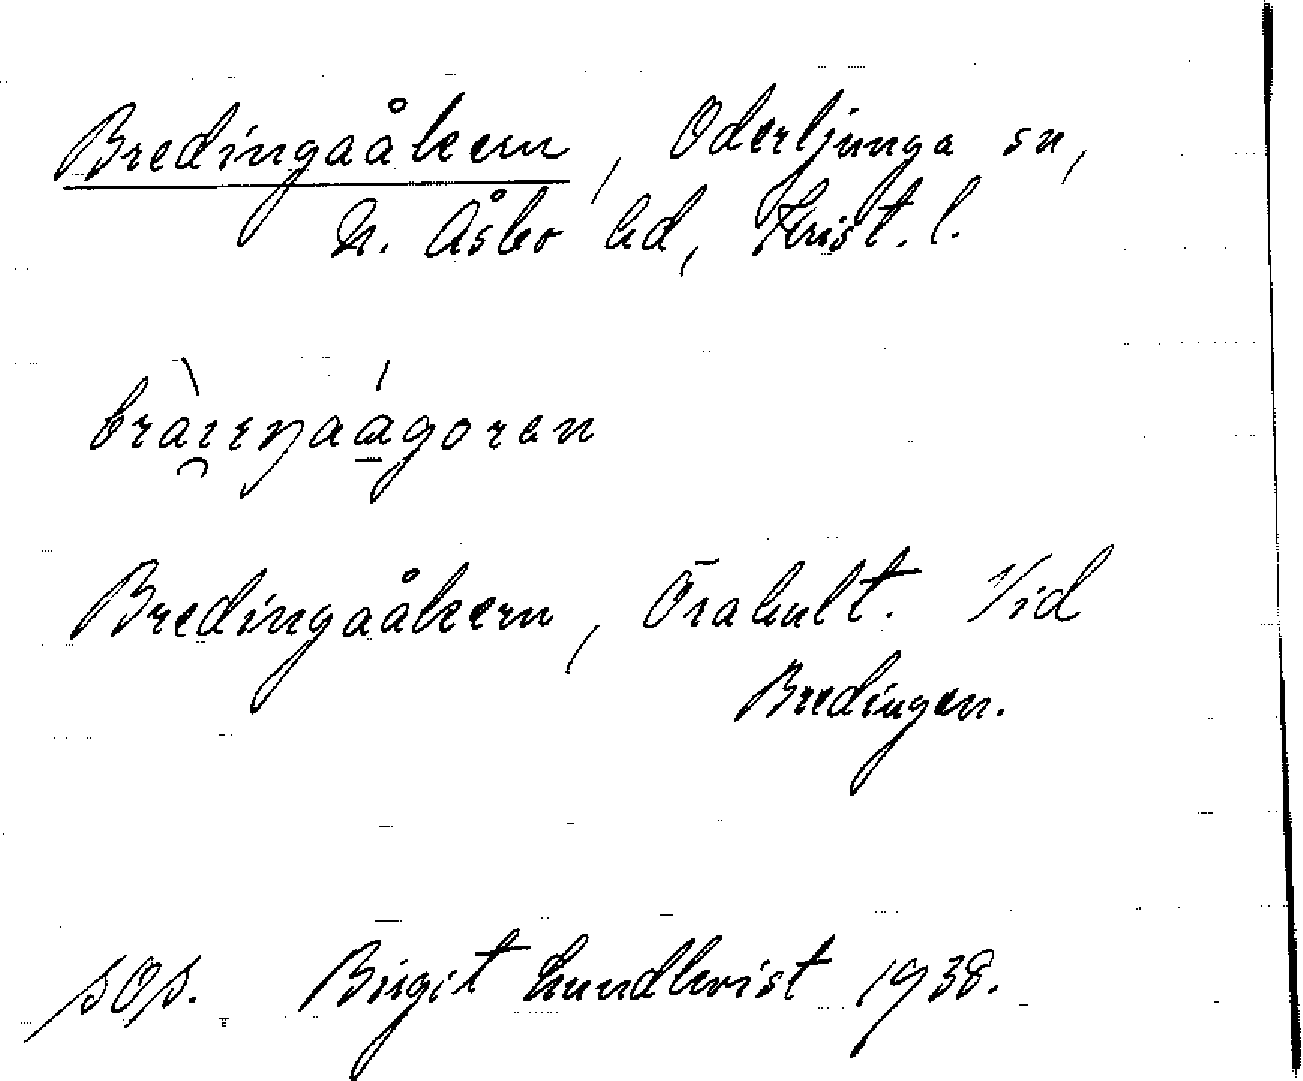 Bredingaåkern, Oderljunga sn,
N. Åsbo hd, Krist. l.
Bredingaåkern, Örahult. Vid
Bredingen.
sOs. Birgit Lundkvist 1938.